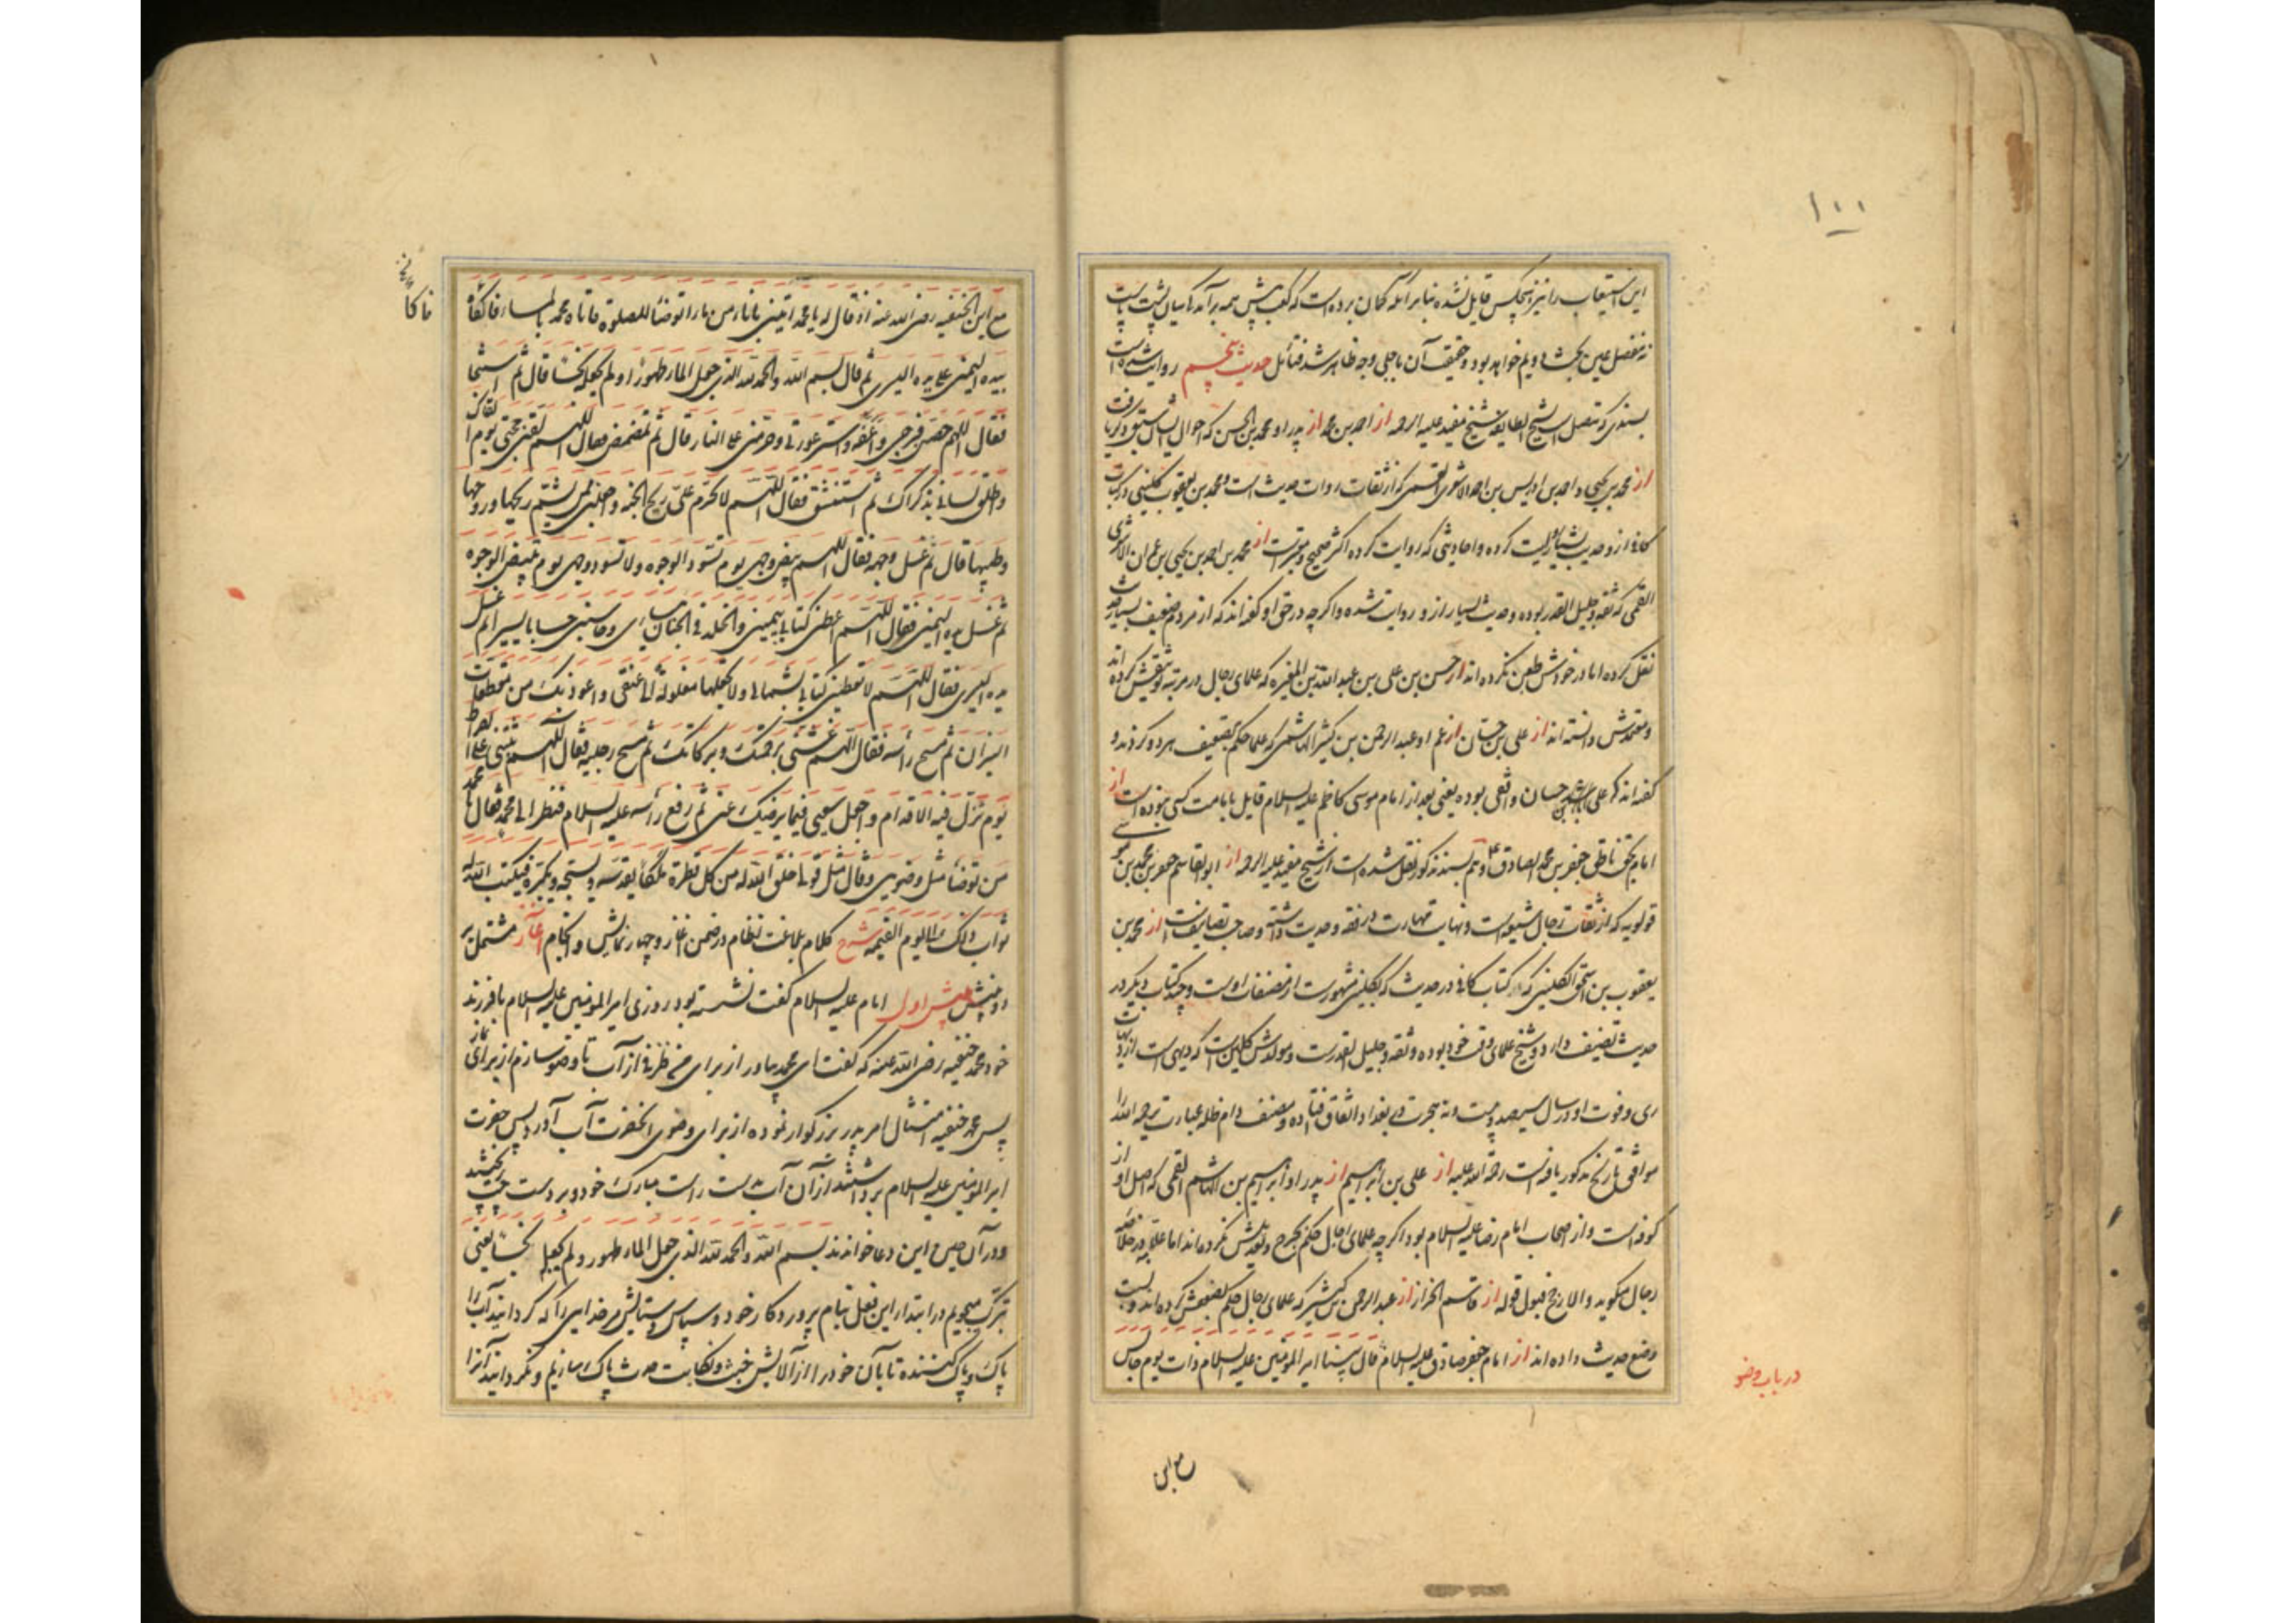 ۱۰۰
این استیعاب را نیز هیچکس قایل نشده بنابر آنکه گمان برده است که کعب پیش همه برآمدگی میان پشت پاست
نه مفصل عین بحث دویم خواهد بود و حقیقت آن باجلی وجه ظاهر شد فتأمل حدیث پنجم روایت شده است
بسندی که متصل است بشیخ الطایفه شیخ مفید علیه الرحمه از احمد بن محمد از پدر او محمد بن الحسن که احوال ایشان سبق ذکر یافت
از محمد بن یحیی و احمد بن ادریس بن احمد الاشعری القمی که از ثقات روات حدیث است و محمد بن یعقوب کلینی در کتاب
کافی از و حدیث بسیار روایت کرده و احادیثی که روایت کرده اکثر صحیح و معتبرست از محمد بن احمد بن یحیی بن عمران الاشعری
القمی که ثقه و جلیل القدر بوده و حدیث بسیار از و روایت شده و اگر چه در حق او گفته‌اند که از مردم ضعیف بسیار حدیث
نقل کرده اما در خودش طعن نکرده اند از حسن بن علی بن عبد الله بن المغیره که علمای رجال در مرتبه توثیقش کرده اند
و معتمدش دانسته اند از علی بن حسان از عم او عبد الرحمن بن کثیر الهاشمی که علما حکم بتضعیف هر دو کرده‌ند و
گفته اند که علی بن حسان واقفی بوده یعنی بعد از امام موسی کاظم علیه السلام قایل بامامت کسی نبوده است از
امام بحق ناطق جعفر بن محمد الصادق ع و هم بسند مذکور نقل شده است از شیخ مفید علیه الرحمه از ابو القاسم جعفر بن محمد بن موسی
قولویه که از ثقات رجال شیعه است و نهایت مهارت در فقه و حدیث داشته و صاحب تصانیفست از محمد بن
یعقوب بن اسحق الکلینی که کتاب کافی در حدیث که بکلینی مشهورست از مصنفات اوست و چند کتاب دیگر در
حدیث تصنیف دارد و شیخ علمای وقت خود بوده و ثقه و جلیل القدرست و مولدش کلین است که دیهی است از دیهات
ری و فوت او در سال سیصد و بیست و نه هجرت در بغداد اتفاق افتاده و مصنف دام ظله عبارت رحمه الله را
موافق تاریخ مذکور یافته است رحمة الله علیه از علی بن ابراهیم از پدر او ابراهیم بن الهاشم القمی که اصل او از
کوفه است و از اصحاب امام رضا علیه السلام بود اگر چه علمای رجال حکم بجرح و تعدیلش نکرده اند اما علامه در خلاصه
رجال میگوید والارجح قبول قوله از قاسم الخزاز از عبد الرحمن بن کثیر که علمای رجال حکم بضعفش کرده اند و نسبت
وضع حدیث داده اند از امام جعفر صادق علیه السلام قال بینا امیر المؤمنین علیه السلام ذات یوم جالس
در باب وضو
مع ابن الحنفیه رضی الله عنه اذ قال له یا محمد ایتنی باناء من ماء اتوضأ للصلوة فاتاه محمد بالماء فاکفاه
بیده الیمنی علی یده الیسری ثم قال بسم الله والحمد لله الذی جعل الماء طهورا و لم یجعله نجسا قال ثم استنجا
فقال اللهم حصن فرجی واعفه واستر عورتی وحرمنی علی النار قال ثم تمضمض فقال اللهم لقنی حجتی یوم القاک
واطلق لسانی بذکراک ثم استنشق فقال اللهم لا تحرم علی ریح الجنه واجعلنی ممن یشم ریحها وروحها
وطیبها قال ثم غسل وجهه فقال اللهم بیض وجهی یوم تسود الوجوه ولا تسود وجهی یوم تبیض الوجوه
ثم غسل یده الیمنی فقال اللهم اعطنی کتابی بیمینی والخلد فی الجنان بیساری وحاسبنی حسابا یسیرا ثم غسل
یده الیسری فقال اللهم لا تعطنی کتابی بشمالی ولا تجعلها مغلولة الی عنقی واعوذ بک من مقطعات
النیران ثم مسح رأسه فقال اللهم غشنی برحمتک وبرکاتک ثم مسح رجلیه فقال اللهم ثبتنی علی الصراط
یوم تزل فیه الاقدام واجعل سعیی فیما یرضیک عنی ثم رفع رأسه علیه السلام فنظر الی محمد فقال یا محمد
من توضأ مثل وضوئی وقال مثل قولی خلق الله له من کل قطرة ملکا یقدسه ویسبحه ویکبره فیکتب الله له
ثواب ذلک الی یوم القیمه شرح کلام بلاغت نظام در ضمن آغاز و چهار نمایش و انجام آغاز مشتمل بر
دو بینش بینش اول امام علیه السلام گفت نشسته بود روزی امیر المؤمنین علیه السلام با فرزند
خود محمد حنفیه رضی الله عنه که گفت ای محمد بیاور از برای من ظرفی از آب تا وضو سازم از برای نماز
پس محمد حنفیه امتثال امر پدر بزرگوار نموده از برای وضوی آنحضرت آب آورد پس حضرت
امیر المؤمنین علیه السلام برداشتند از آن آب بدست راست مبارک خود و بر دست چپ ریختند
و در آن حین این دعا خواندند بسم الله والحمد لله الذی جعل الماء طهورا ولم یجعله نجسا یعنی
تبرک میجویم در ابتداء این فعل بنام پروردگار خود و سپاس و ستایش مر خدایی را که گردانید آب را
پاک و پاک کننده تا بآن خود را از آلایش خبث و نجاست حدث پاک سازیم و نگردانید آنرا